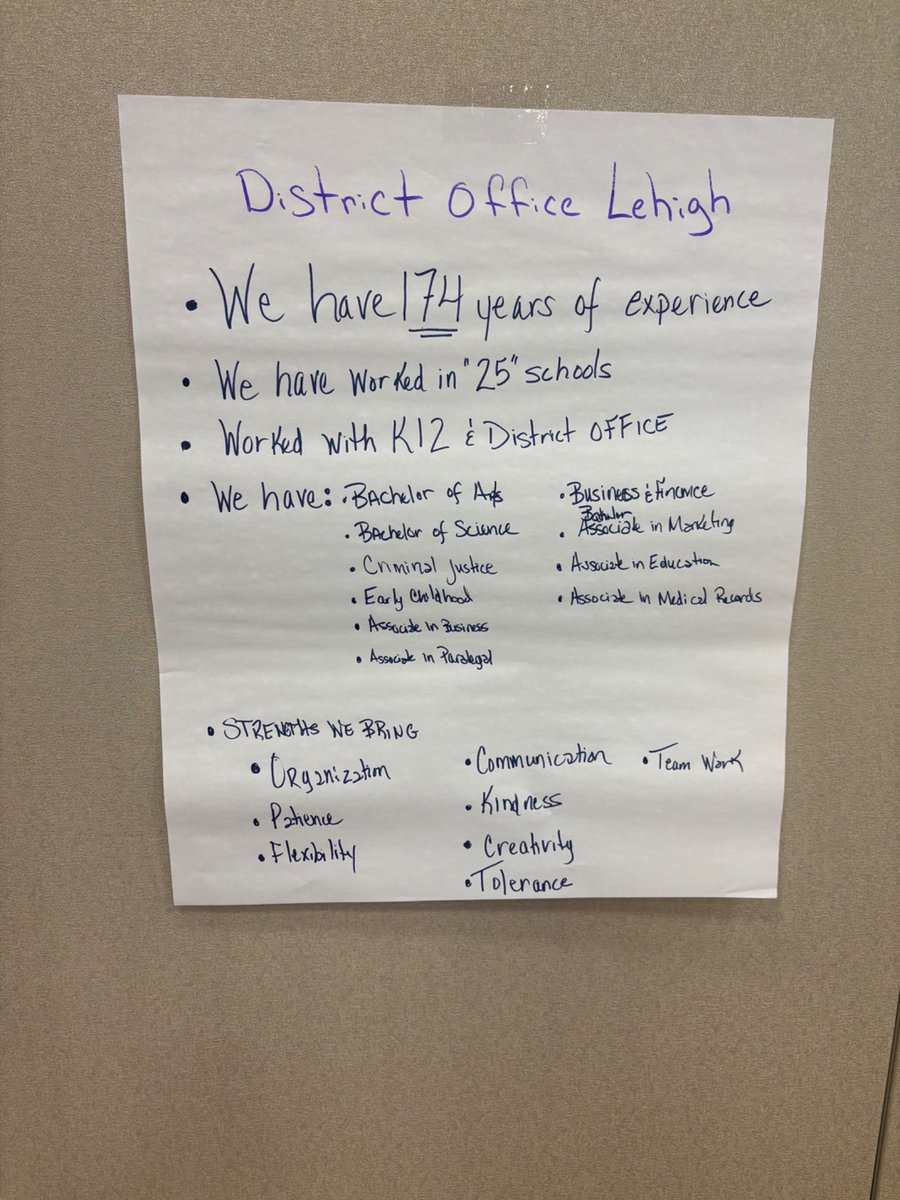 District Office Lehigh
• We have 174 years of experience
• We have worked in "25" schools
• Worked with K12 & District OFFICE
• We have: • BAchelor of Arts
• BAchelor of Science
• Criminal Justice
• Early Childhood
• Associate in Business
• Associate in Paralegal
• Business & Finance
Bachelor
• Associate in Marketing
• Associate in Education
• Associate in Medical Records
• STRENGTHS WE BRING
• ORganization
• Patience
• Flexibility
• Communication
• Kindness
• Creativity
• Tolerance
• Team Work